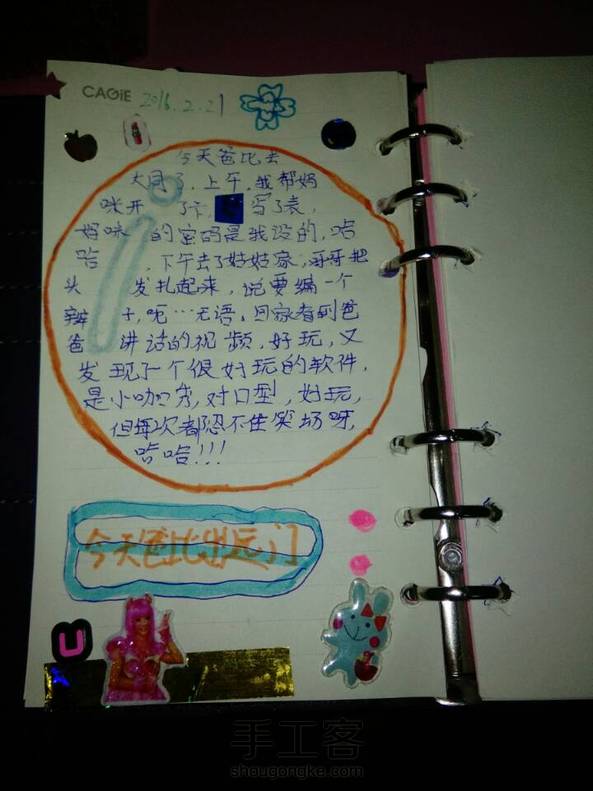 CAGiE 2016.2.21
今天爸比去
大同了,上午,我帮妈
咪开 了卡, 写了表,
妈咪 的密码是我设的,哈
哈 ,下午去了姑姑家,哥哥把
头 发扎起来,说要编一个
辫 子,呃…无语,回家看到爸
爸 讲话的视频,好玩,又
发现了一个很好玩的软件,
是小咖秀,对口型,好玩,
但每次都忍不住笑场呀,
哈哈!!!
今天爸比出远门
U
手工客
shougongke.com